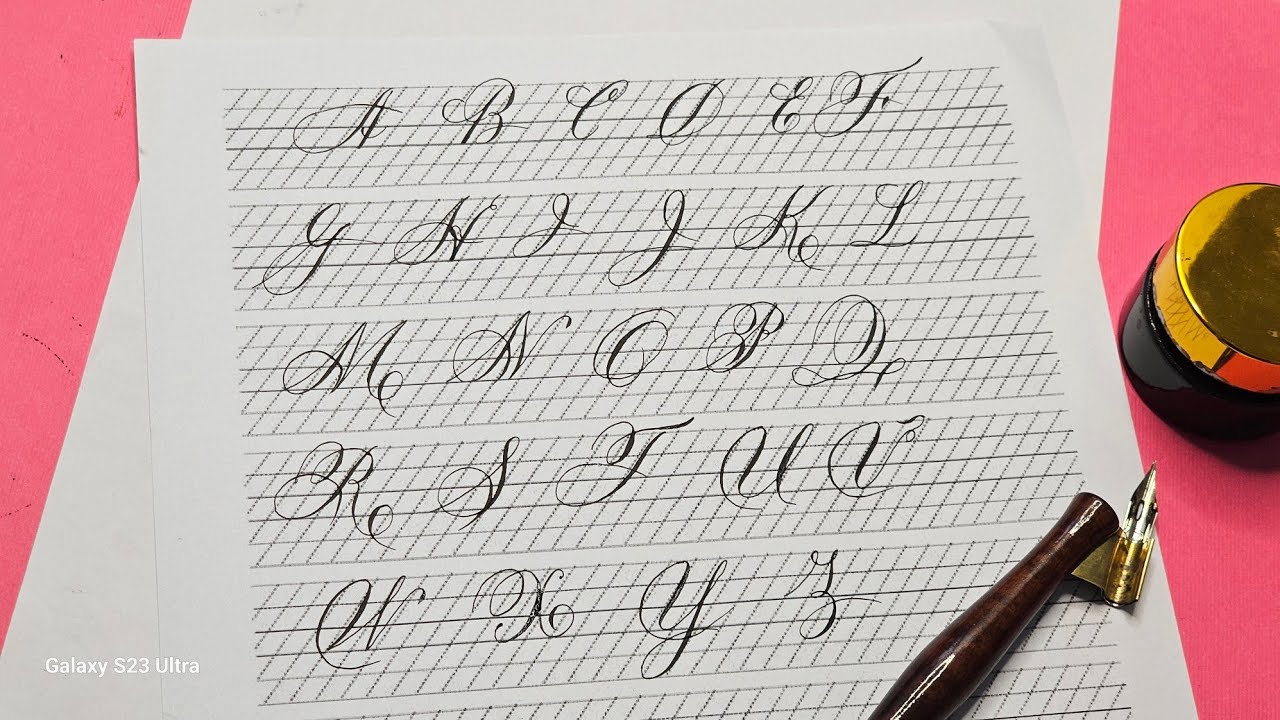 A B C D E F
G H I J K L
M N O P Q
R S T U V
W X Y Z
Galaxy S23 Ultra